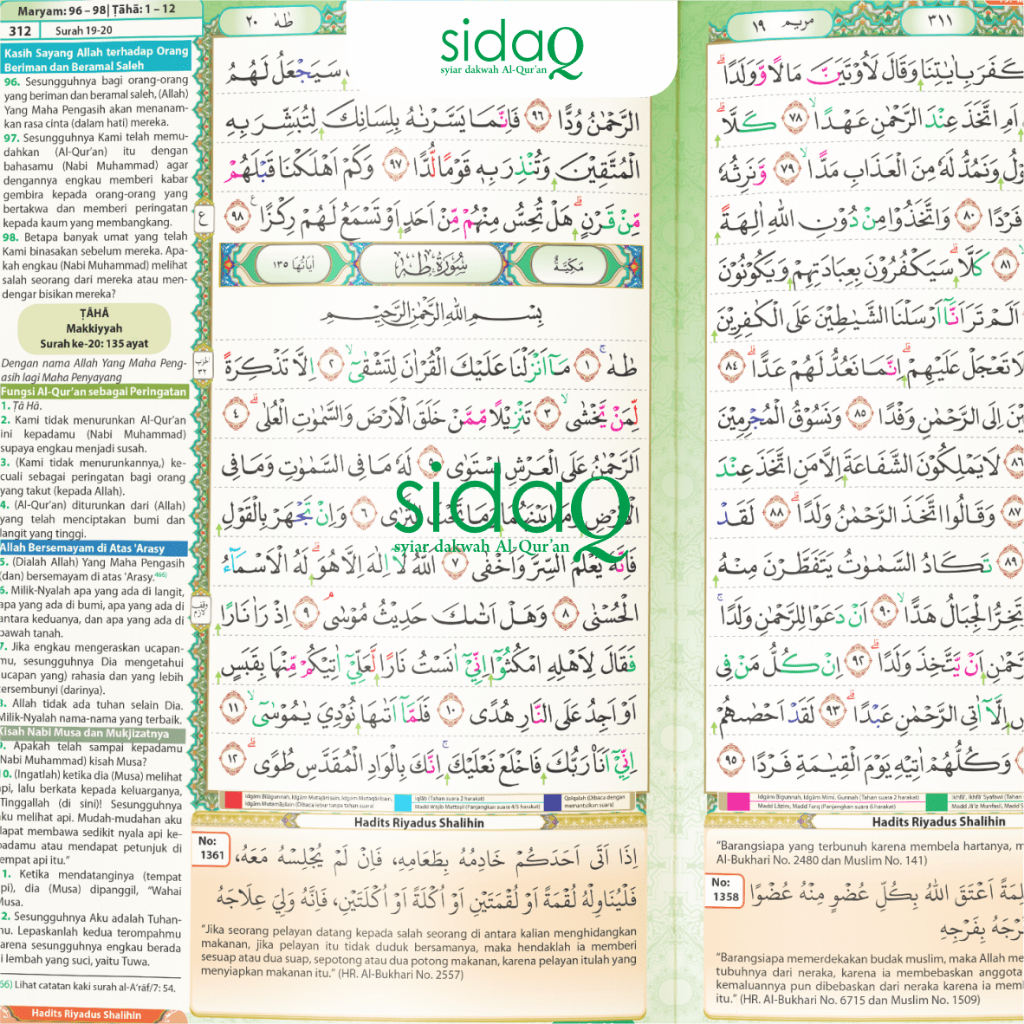 Maryam: 96 – 98| Ṭāhā: 1 – 12
312 Surah 19-20
Kasih Sayang Allah terhadap Orang
Beriman dan Beramal Saleh
96. Sesungguhnya bagi orang-orang
yang beriman dan beramal saleh, (Allah)
Yang Maha Pengasih akan menanam-
kan rasa cinta (dalam hati) mereka.
97. Sesungguhnya Kami telah memu-
dahkan (Al-Qur'an) itu dengan
bahasamu (Nabi Muhammad) agar
dengannya engkau memberi kabar
gembira kepada orang-orang yang
bertakwa dan memberi peringatan
kepada kaum yang membangkang.
98. Betapa banyak umat yang telah
Kami binasakan sebelum mereka. Apa-
kah engkau (Nabi Muhammad) melihat
salah seorang dari mereka atau men-
dengar bisikan mereka?
ṬĀHĀ
Makkiyyah
Surah ke-20: 135 ayat
Dengan nama Allah Yang Maha Peng-
asih lagi Maha Penyayang
Fungsi Al-Qur'an sebagai Peringatan
1. Ṭā Hā.
2. Kami tidak menurunkan Al-Qur'an
ini kepadamu (Nabi Muhammad)
supaya engkau menjadi susah.
3. (Kami tidak menurunkannya,) ke-
cuali sebagai peringatan bagi orang
yang takut (kepada Allah).
4. (Al-Qur'an) diturunkan dari (Allah)
yang telah menciptakan bumi dan
langit yang tinggi.
Allah Bersemayam di Atas 'Arasy
5. (Dialah Allah) Yang Maha Pengasih
(dan) bersemayam di atas 'Arasy.466)
6. Milik-Nyalah apa yang ada di langit,
apa yang ada di bumi, apa yang ada di
antara keduanya, dan apa yang ada di
bawah tanah.
7. Jika engkau mengeraskan ucapan-
mu, sesungguhnya Dia mengetahui
(ucapan yang) rahasia dan yang lebih
tersembunyi (darinya).
8. Allah tidak ada tuhan selain Dia.
Milik-Nyalah nama-nama yang terbaik.
Kisah Nabi Musa dan Mukjizatnya
9. Apakah telah sampai kepadamu
(Nabi Muhammad) kisah Musa?
10. (Ingatlah) ketika dia (Musa) melihat
api, lalu berkata kepada keluarganya,
"Tinggallah (di sini)! Sesungguhnya
aku melihat api. Mudah-mudahan aku
dapat membawa sedikit nyala api ke-
padamu atau mendapat petunjuk di
tempat api itu."
11. Ketika mendatanginya (tempat
api), dia (Musa) dipanggil, "Wahai
Musa.
12. Sesungguhnya Aku adalah Tuhan-
mu. Lepaskanlah kedua terompahmu
karena sesungguhnya engkau berada
di lembah yang suci, yaitu Tuwa.
466) Lihat catatan kaki surah al-A'rāf/7: 54.
Hadits Riyadus Shalihin
طٰهٰ ٢٠
sidaQ
syiar dakwah Al-Qur'an
سَيَجْعَلُ لَهُمُ
الرَّحْمٰنُ وُدًّا ٩٦ فَاِنَّمَا يَسَّرْنٰهُ بِلِسَانِكَ لِتُبَشِّرَ بِهِ
الْمُتَّقِيْنَ وَتُنْذِرَ بِهٖ قَوْمًا لُّدًّا ٩٧ وَكَمْ اَهْلَكْنَا قَبْلَهُمْ
مِّنْ قَرْنٍۗ هَلْ تُحِسُّ مِنْهُمْ مِّنْ اَحَدٍ اَوْ تَسْمَعُ لَهُمْ رِكْزًا ٩٨
مَكِّيَّةٌ سُوْرَةُ طٰهٰ اٰيَاتُهَا ١٣٥
بِسْمِ اللّٰهِ الرَّحْمٰنِ الرَّحِيْمِ
طٰهٰ ١ مَآ اَنْزَلْنَا عَلَيْكَ الْقُرْاٰنَ لِتَشْقٰٓى ٢ اِلَّا تَذْكِرَةً
لِّمَنْ يَّخْشٰى ٣ تَنْزِيْلًا مِّمَّنْ خَلَقَ الْاَرْضَ وَالسَّمٰوٰتِ الْعُلٰى ٤
اَلرَّحْمٰنُ عَلَى الْعَرْشِ اسْتَوٰى ٥ لَهٗ مَا فِى السَّمٰوٰتِ وَمَا فِى
الْاَرْضِ وَمَا بَيْنَهُمَا وَمَا تَحْتَ الثَّرٰى ٦ وَاِنْ تَجْهَرْ بِالْقَوْلِ
فَاِنَّهٗ يَعْلَمُ السِّرَّ وَاَخْفٰى ٧ اَللّٰهُ لَآ اِلٰهَ اِلَّا هُوَۗ لَهُ الْاَسْمَاۤءُ
الْحُسْنٰى ٨ وَهَلْ اَتٰىكَ حَدِيْثُ مُوْسٰى ٩ اِذْ رَاٰ نَارًا
فَقَالَ لِاَهْلِهِ امْكُثُوْٓا اِنِّيْٓ اٰنَسْتُ نَارًا لَّعَلِّيْٓ اٰتِيْكُمْ مِّنْهَا بِقَبَسٍ
اَوْ اَجِدُ عَلَى النَّارِ هُدًى ١٠ فَلَمَّآ اَتٰىهَا نُوْدِيَ يٰمُوْسٰٓى ١١
اِنِّيْٓ اَنَا۠ رَبُّكَ فَاخْلَعْ نَعْلَيْكَۚ اِنَّكَ بِالْوَادِ الْمُقَدَّسِ طُوًى ١٢
sidaQ
syiar dakwah Al-Qur'an
Hadits Riyadus Shalihin
No:
1361
اِذَا اَتَى اَحَدَكُمْ خَادِمُهُ بِطَعَامِهِ، فَاِنْ لَمْ يُجْلِسْهُ مَعَهُ،
فَلْيُنَاوِلْهُ لُقْمَةً اَوْ لُقْمَتَيْنِ اَوْ اُكْلَةً اَوْ اُكْلَتَيْنِ، فَاِنَّهُ وَلِيَ عِلَاجَهُ
"Jika seorang pelayan datang kepada salah seorang di antara kalian menghidangkan
makanan, jika pelayan itu tidak duduk bersamanya, maka hendaklah ia memberi
sesuap atau dua suap, sepotong atau dua potong makanan, karena pelayan itulah yang
menyiapkan makanan itu." (HR. Al-Bukhari No. 2557)
مريم ١٩ ٣١١
كَفَرَ بِاٰيٰتِنَا وَقَالَ لَاُوْتَيَنَّ مَالًا وَّوَلَدًا
اَمِ اتَّخَذَ عِنْدَ الرَّحْمٰنِ عَهْدًا ٧٨ كَلَّا
وَنَمُدُّ لَهٗ مِنَ الْعَذَابِ مَدًّا ٧٩ وَّنَرِثُهٗ
فَرْدًا ٨٠ وَاتَّخَذُوْا مِنْ دُوْنِ اللّٰهِ اٰلِهَةً
٨١ كَلَّا سَيَكْفُرُوْنَ بِعِبَادَتِهِمْ وَيَكُوْنُوْنَ
اَلَمْ تَرَ اَنَّآ اَرْسَلْنَا الشَّيٰطِيْنَ عَلَى الْكٰفِرِيْنَ
تَعْجَلْ عَلَيْهِمْۗ اِنَّمَا نَعُدُّ لَهُمْ عَدًّا ٨٤
اِلَى الرَّحْمٰنِ وَفْدًا ٨٥ وَنَسُوْقُ الْمُجْرِمِيْنَ
٨٦ لَا يَمْلِكُوْنَ الشَّفَاعَةَ اِلَّا مَنِ اتَّخَذَ عِنْدَ
٨٧ وَقَالُوا اتَّخَذَ الرَّحْمٰنُ وَلَدًا ٨٨ لَقَدْ
٨٩ تَكَادُ السَّمٰوٰتُ يَتَفَطَّرْنَ مِنْهُ
الْجِبَالُ هَدًّا ٩٠ اَنْ دَعَوْا لِلرَّحْمٰنِ وَلَدًا
اَنْ يَّتَّخِذَ وَلَدًا ٩٢ اِنْ كُلُّ مَنْ فِى
اِلَّآ اٰتِى الرَّحْمٰنِ عَبْدًا ٩٣ لَقَدْ اَحْصٰىهُمْ
وَكُلُّهُمْ اٰتِيْهِ يَوْمَ الْقِيٰمَةِ فَرْدًا ٩٥
Hadits Riyadus Shalihin
"Barangsiapa yang terbunuh karena membela hartanya,
Al-Bukhari No. 2480 dan Muslim No. 141)
No:
1358
اَعْتَقَ اللّٰهُ بِكُلِّ عُضْوٍ مِنْهُ عُضْوًا
بِفَرْجِهِ
"Barangsiapa memerdekakan budak muslim, maka Allah
tubuhnya dari neraka, karena ia membebaskan
kemaluannya pun dibebaskan dari neraka karena ia
itu." (HR. Al-Bukhari No. 6715 dan Muslim No. 1509)